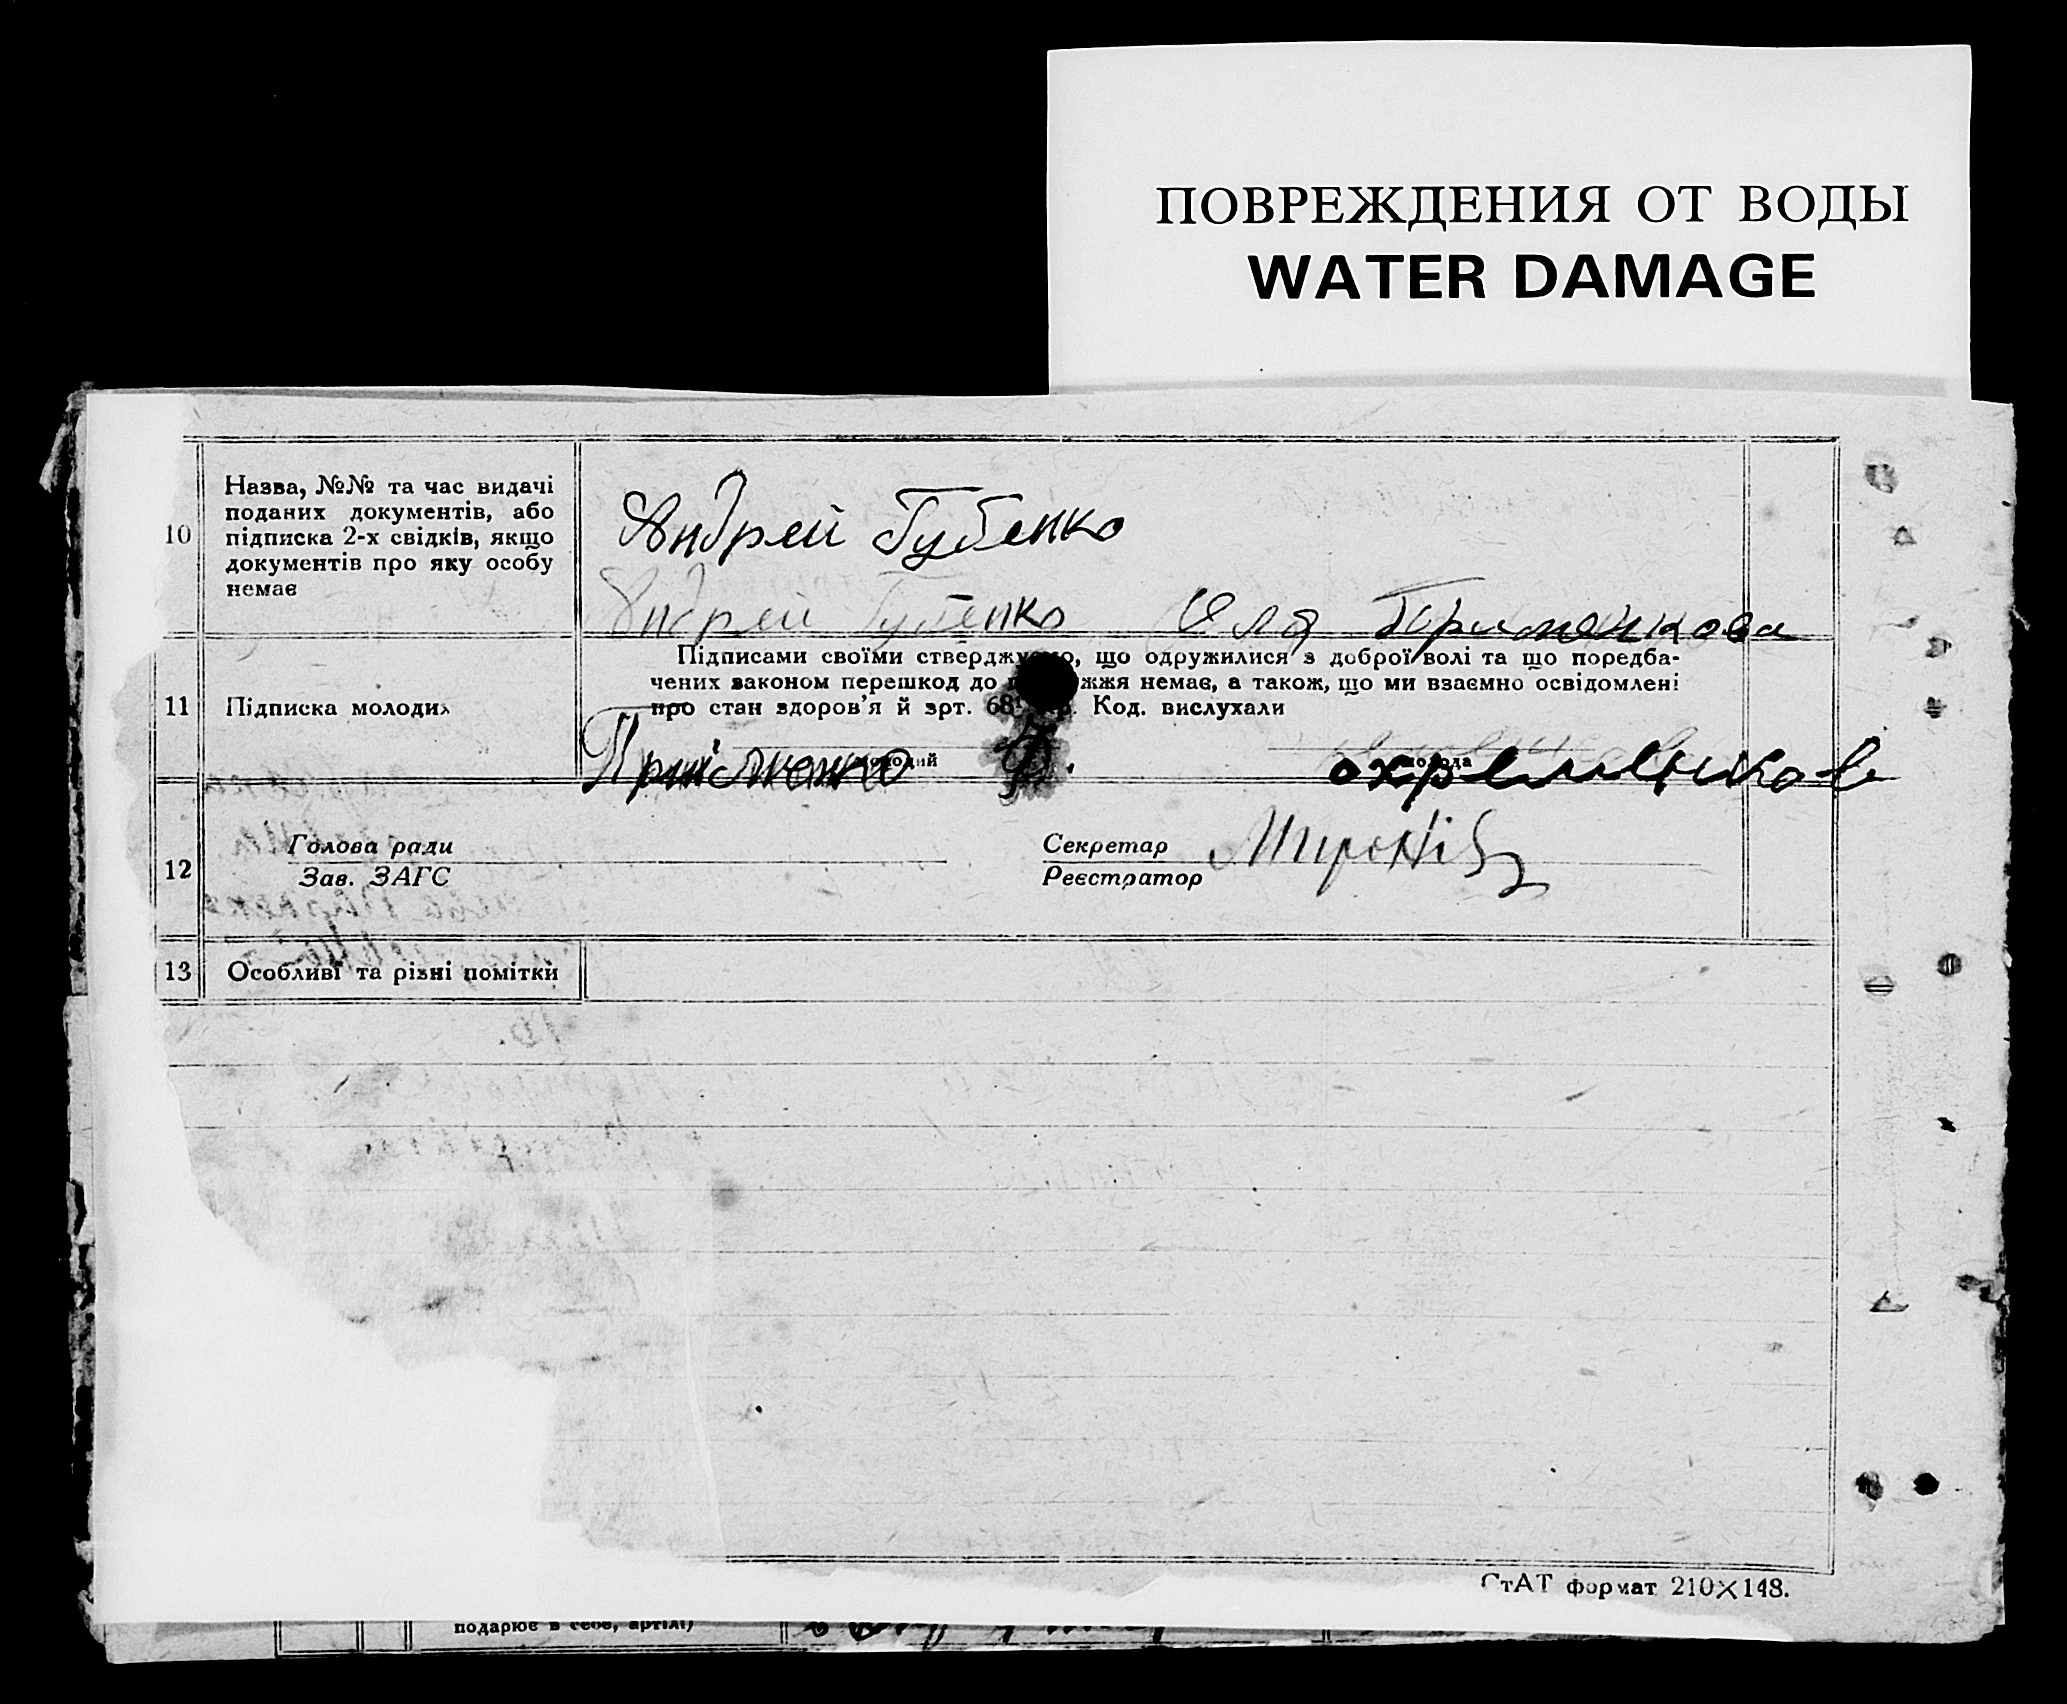 ПОВРЕЖДЕНИЯ ОТ ВОДЫ
WATER DAMAGE
10
Назва, №№ та час видачі
поданих документів, або
підписка 2-х свідків, якщо
документів про яку особу
немає
Андрей Губенко
Андрей Губенко Оля
11
Підписка молодих
Підписами своїми стверджуємо, що одружилися з доброї волі та що поредба-
чених законом перешкод до жжя немає, а також, що ми взаємно освідомлені
про стан здоров'я й зрт. 68 Код. вислухали
молодий
молода
12
Голова ради
Зав. ЗАГС
Секретар
Реєстратор
13
Особливі та різні помітки
СтАТ формат 210×148.
подарює в себе, артілі)